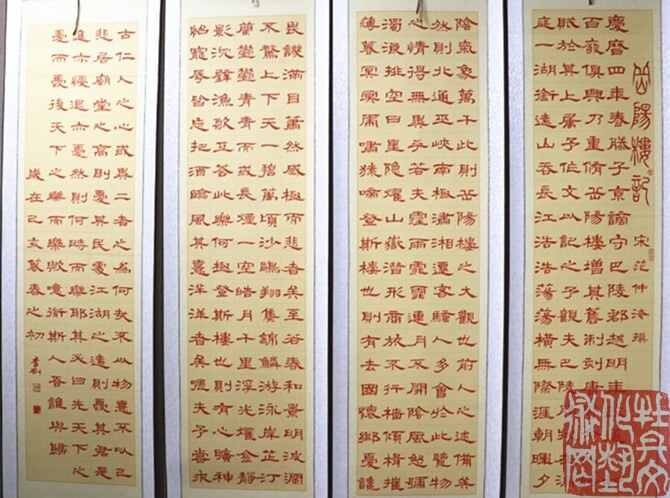 岳陽樓記 宋 范仲淹撰
慶曆四年春滕子京謫守巴陵郡越明年
百廢俱興乃重脩岳陽樓增其舊制刻唐
賦於其上屬予作文以記之予觀夫巴陵
庭一湖銜遠山吞長江浩浩蕩蕩橫無際涯朝暉夕
陰氣象萬千此則岳陽樓之大觀也前人之述備矣
然則北通巫峽南極瀟湘遷客騷人多會於此覽物
之情得無異乎若夫霪雨霏霏連月不開陰風怒號
濁浪排空日星隱耀山嶽潛形商旅不行檣傾楫摧
薄暮冥冥虎嘯猿啼登斯樓也則有去國懷鄉憂讒
畏譏滿目蕭然感極而悲者矣至若春和景明波瀾
不驚上下天一碧萬頃沙鷗翔集錦鱗游泳岸芷汀
蘭鬱鬱青青而或長煙一空皓月千里浮光耀金靜
影沉璧漁歌互答此樂何極登斯樓也則有心曠神
怡寵辱皆忘把酒臨風其喜洋洋者矣嗟夫予嘗求
古仁人之心或異二者之為何哉不以物喜不以己
悲居廟堂之高則憂其民處江湖之遠則憂其君是
進亦憂退亦憂然則何時而樂耶其必曰先天下之
憂而憂後天下之樂而樂歟噫微斯人吾誰與歸
歲在己亥暮春之初